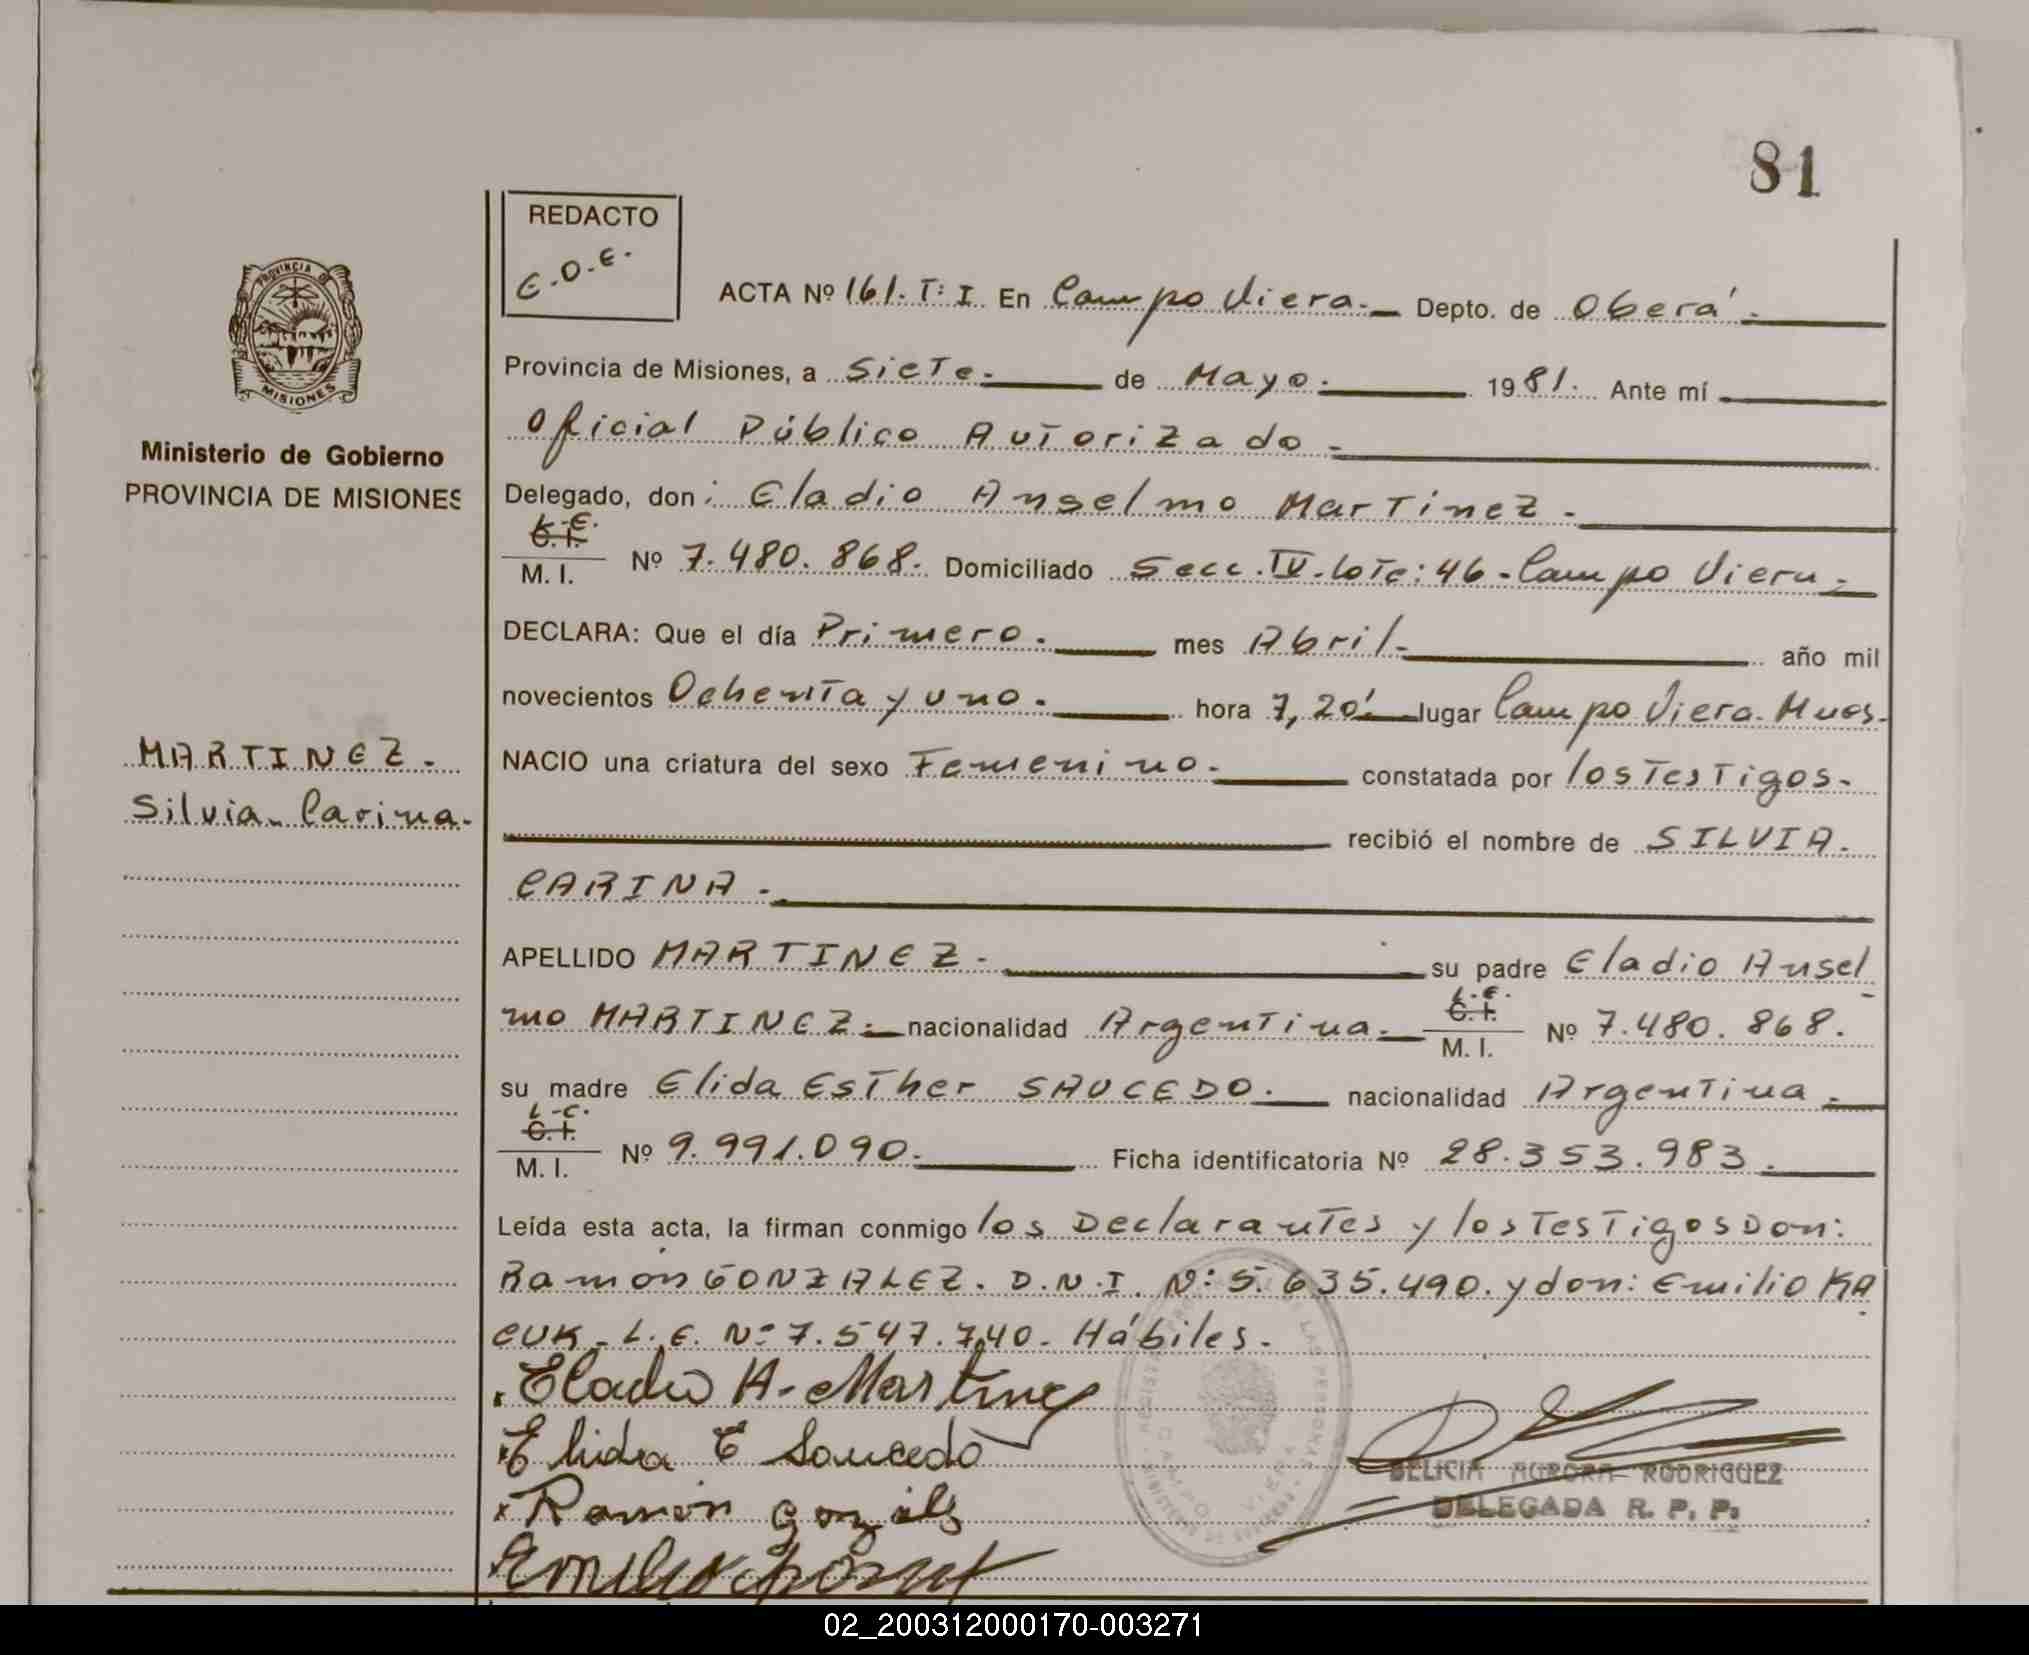 81
REDACTO
E.O.E.
PROVINCIA DE
MISIONES
Ministerio de Gobierno
PROVINCIA DE MISIONES
MARTINEZ.
Silvia Carina.
ACTA Nº 161. T: I. En Campo Viera. Depto. de Oberá.
Provincia de Misiones, a Siete. de Mayo. 1981. Ante mí
Oficial Público Autorizado
Delegado, don: Eladio Anselmo Martinez.
L.E.
C. I.
M. I. Nº 7.480.868. Domiciliado Secc. IV. Lote: 46 - Campo Viera
DECLARA: Que el día Primero. mes Abril. año mil
novecientos Ochenta y uno. hora 7,20' lugar Campo Viera. Mnes.
NACIO una criatura del sexo Femenino. constatada por los Testigos.
recibió el nombre de SILVIA.
CARINA.
APELLIDO MARTINEZ. su padre Eladio Ansel
mo MARTINEZ. nacionalidad Argentina. L.E. C. I. M. I. Nº 7.480.868.
su madre Elida Esther SAUCEDO. nacionalidad Argentina.
L.C.
C. I.
M. I. Nº 9.991.090. Ficha identificatoria Nº 28.353.983.
Leída esta acta, la firman conmigo los Declarantes y los Testigos Don:
Ramón GONZALEZ. D.N.I. Nº 5.635.490. y don: Emilio KA
CUK. L.E. Nº 7.547.740. Hábiles.
Eladio A. Martinez
Elida E Saucedo
Ramon
DELICIA AURORA RODRIGUEZ
DELEGADA R. P. P.
CAMPO VIERA
02_200312000170-003271